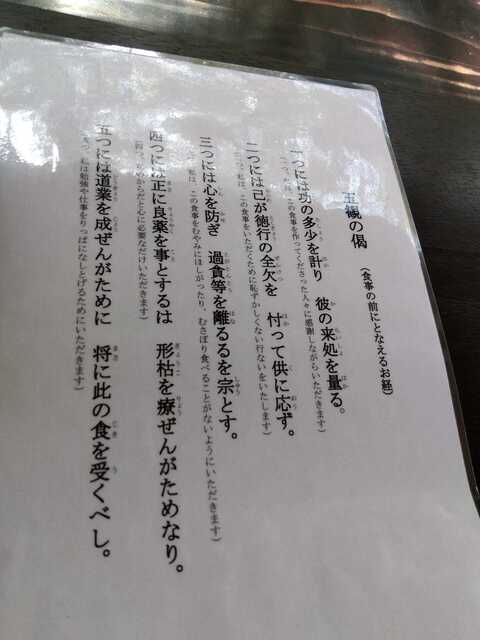 五観の偈 (食事の前にとなえるお経)
一つには功の多少を計り 彼の来処を量る。
(一つ、私は、この食事を作ってくださった人々に感謝しながらいただきます)
二つには己が徳行の全欠を 忖って供に応ず。
(二つ、私は、この食事をいただくために恥ずかしくない行ないをいたします)
三つには心を防ぎ 過貪等を離るるを宗とす。
(三つ、私は、この食事をむやみにほしがったり、むさぼり食べることがないようにいただきます)
四つには正に良薬を事とするは 形枯を療ぜんがためなり。
(四つ、私はからだと心に必要なだけいただきます)
五つには道業を成ぜんがために 将に此の食を受くべし。
(五つ、私は勉強や仕事をりっぱになしとげるためにいただきます)